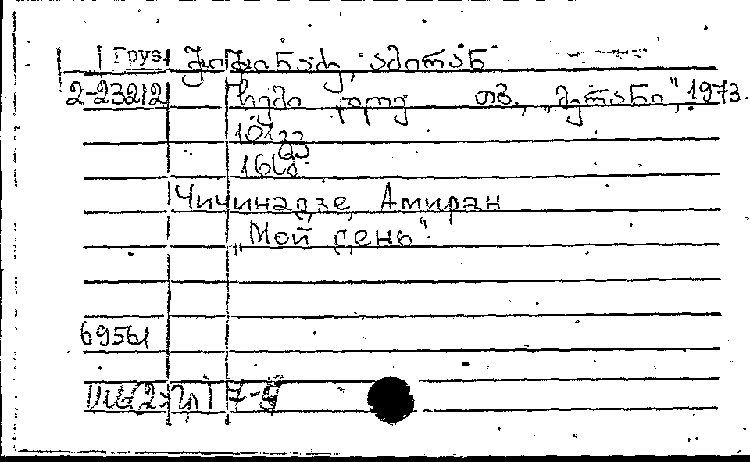 Груз ჭიჭინაძე, ამირან
2-23212 ჩემი დღე თბ., „მერანი", 1973.
101გვ
Чичинадзе, Амиран
„Мой день".
69561